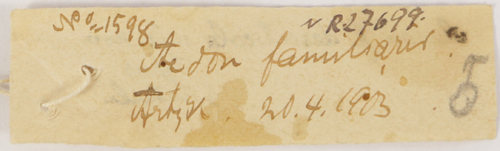 No 1598 R.27699.
Aedon familiaris.
Artyk. 20.4.1903.
5